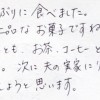 ぶりに食べました。
品のなお菓子ですね
とも、お茶、コーヒーと
。次に夫の実家に
しようと思います。